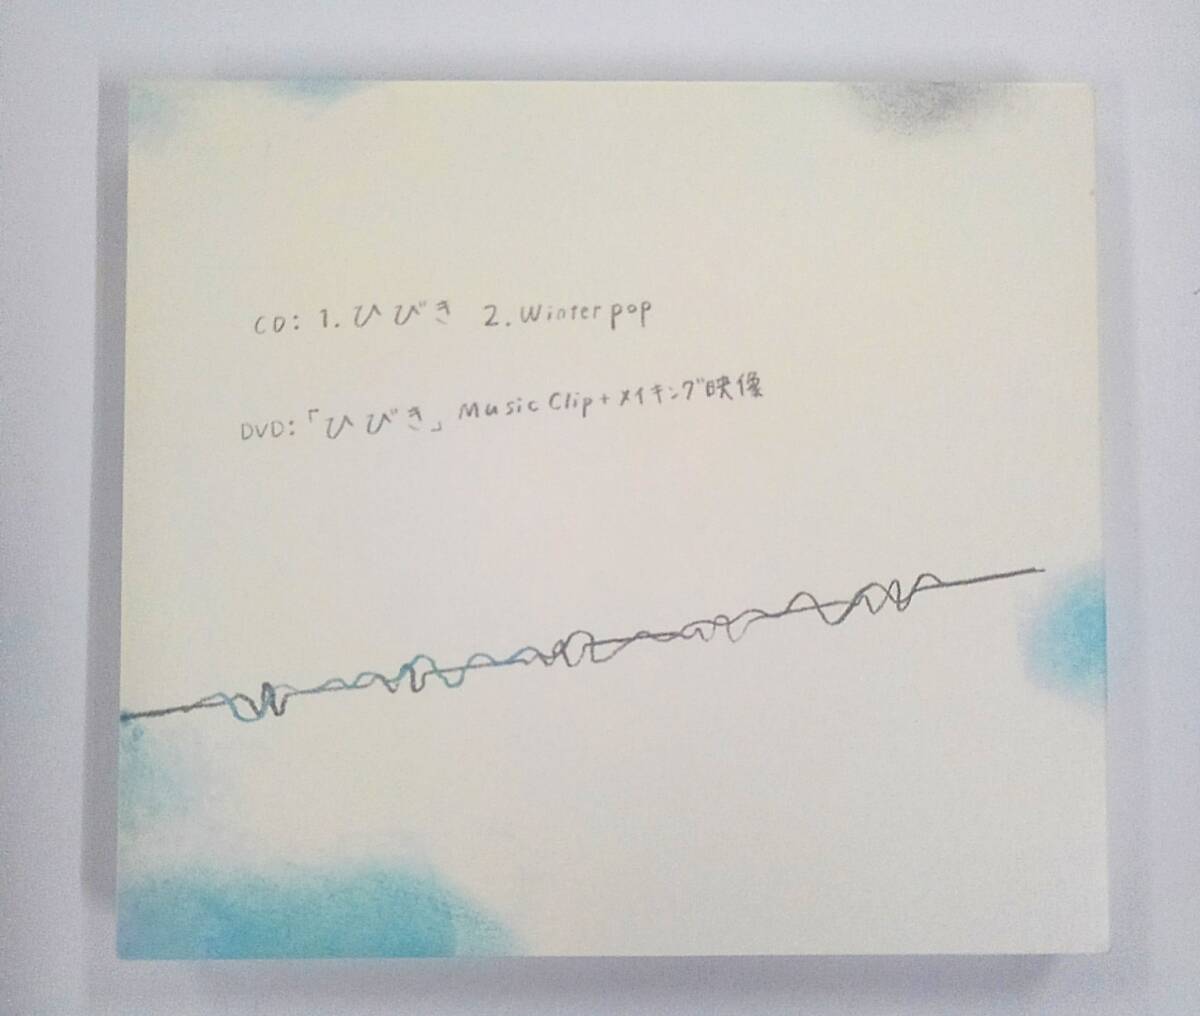 CD: 1. ひびき 2. Winter pop
DVD:「ひびき」Music Clip+メイキング映像